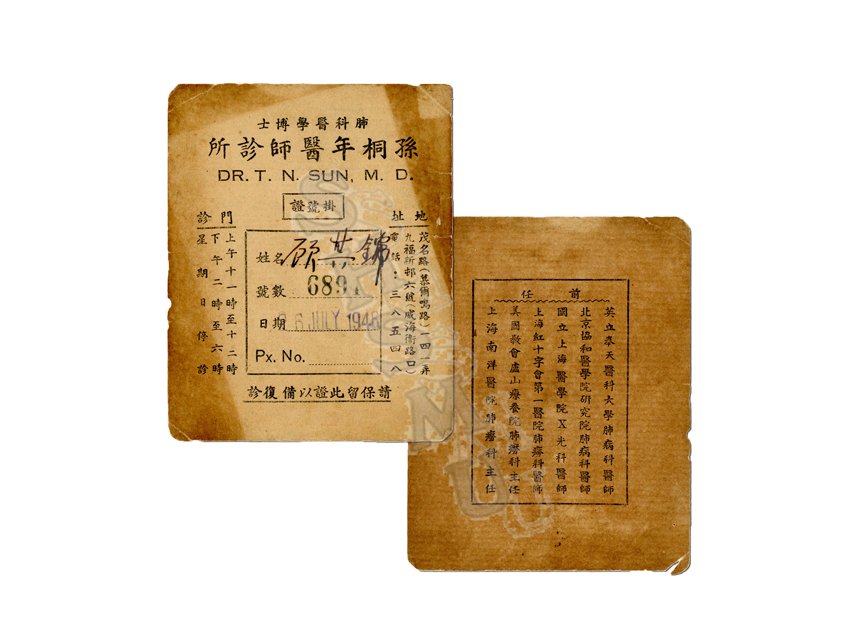 肺科醫學博士
孫桐年醫師診所
DR. T. N. SUN, M. D.
掛號證
地址
茂名路(慕爾鳴路)一四一弄
九福新邨六號(威海衛路口)
電話:三八五四八
姓名
號數
日期 6 JULY 1948
Px. No.
門診
上午十一時至十二時
下午二時至六時
星期日停診
請保留此證以備復診
前任
英立奉天醫科大學肺病科醫師
北京協和醫學院研究院肺病科醫師
國立上海醫學院X光科醫師
上海紅十字會第一醫院肺癆科醫師
美國教會廬山療養院肺癆科主任
上海南洋醫院肺癆科主任